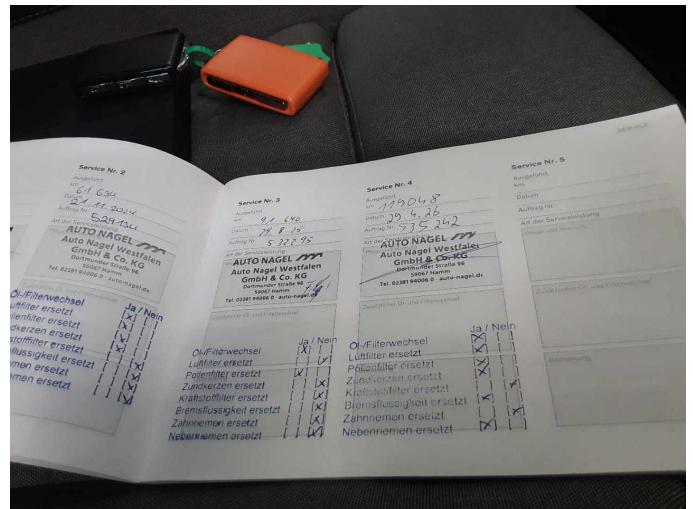 Service Nr. 2
Ausgeführt
km 61 634
Datum 21.11.2024
Auftrag Nr. 529134
Art der Serviceleistung
AUTO NAGEL
Auto Nagel Westfalen
GmbH & Co. KG
Dortmunder Straße 96
59067 Hamm
Tel. 02381 94006 0 · auto-nagel.de
Ja / Nein
Öl-/Filterwechsel
Luftfilter ersetzt
Pollenfilter ersetzt
ndkerzen ersetzt
stofffilter ersetzt
flüssigkeit ersetzt
emen ersetzt
emen ersetzt
Service Nr. 3
Ausgeführt
km 91 640
Datum 29.8.25
Auftrag Nr.
Art der Serviceleistung
AUTO NAGEL
Auto Nagel Westfalen
GmbH & Co. KG
Dortmunder Straße 96
59067 Hamm
Tel. 02381 94006 0 · auto-nagel.de
Zusätzlicher Öl- und Filterwechsel
Ja / Nein
Öl-/Filterwechsel
Luftfilter ersetzt
Pollenfilter ersetzt
Zündkerzen ersetzt
Kraftstofffilter ersetzt
Bremsflüssigkeit ersetzt
Zahnriemen ersetzt
Nebenriemen ersetzt
Service Nr. 4
Ausgeführt
km 119048
Datum 29.4.26
Auftrag Nr. 535242
Art der Serviceleistung
AUTO NAGEL
Auto Nagel Westfalen
GmbH & Co. KG
Dortmunder Straße 96
59067 Hamm
Tel. 02381 94006 0 · auto-nagel.de
Zusätzlicher Öl- und Filterwechsel
Ja / Nein
Öl-/Filterwechsel
Luftfilter ersetzt
Pollenfilter ersetzt
Zündkerzen ersetzt
Kraftstofffilter ersetzt
Bremsflüssigkeit ersetzt
Zahnriemen ersetzt
Nebenriemen ersetzt
Service Nr. 5
Ausgeführt
km
Datum
Auftrag Nr.
Art der Serviceleistung
Pflege und Wartung
Zusätzlicher Öl- und Filterwechsel
Bemerkung